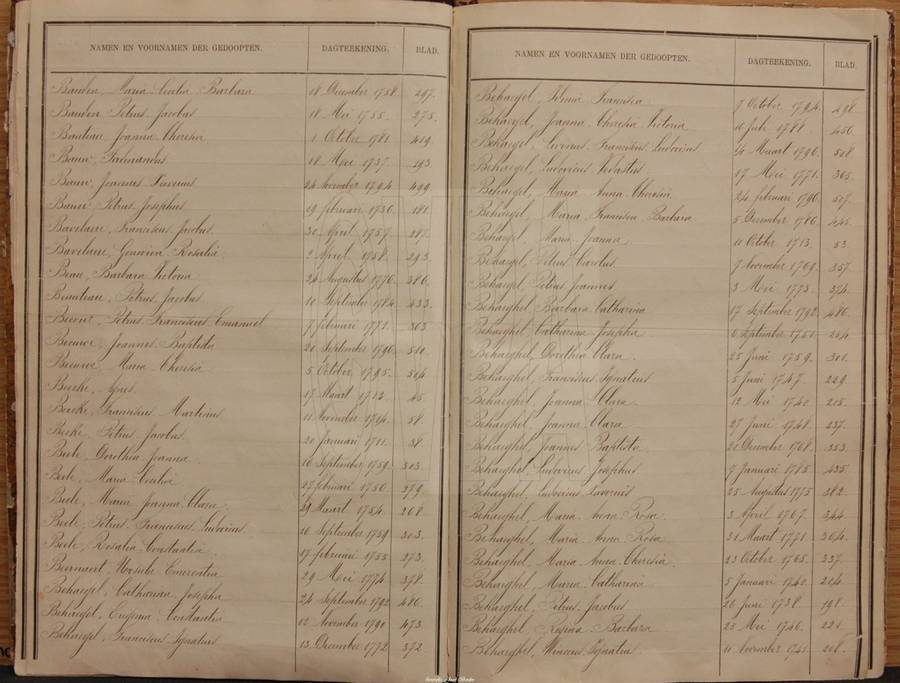 NAMEN EN VOORNAMEN DER GEDOOPTEN. DAGTEEKENING. BLAD.
Bauden, Maria Cecilia Barbara 18 December 1758 297.
Bauden Petrus Jacobus 18 Mei 1755. 275.
Joanna Theresia 1 October 1781. 419.
Ferdinandus 18 Mei 1737. 193
Joannes Xaverius 24 November 1794 499
Petrus Josephus 19 februari 1736. 181.
Bavelaere, Franciscus Jacobus 30 April 1757. 287.
Bavelaere, Genoveva Rosalia 2 April 1758. 293.
Beau, Barbara Victoria 24 Augustus 1776. 386.
Petrus Jacobus 10 September 1784 433.
Petrus Franciscus Emanuel 7 februari 1771. 363.
Joannes Baptista 20 September 1796 510.
Maria Theresia 5 October 1795. 504
Agnes 17 Maart 1712 45
Franciscus Martinus 11 November 1714. 58.
Petrus Jacobus 20 Januari 1711. 38.
Dorothea Joanna 16 September 1759. 303.
Maria Cecilia 27 februari 1756 279.
Maria Joanna Clara 29 Maart 1754. 268.
Petrus Franciscus Ludovicus 16 September 1759 303.
Rosalia Constantia 19 februari 1755 273.
Bernaert Ursula 29 Mei 1774 378.
Behaegel, Catharina Josepha 24 September 1792 486.
Behaegel, Eugenia Constantia 12 November 1790 473.
Behaegel, Franciscus Ignatius 13 December 1772 372
NAMEN EN VOORNAMEN DER GEDOOPTEN. DAGTEEKENING. BLAD.
Behaegel, Francisca 7 October 1794. 498.
Behaegel, Joanna Theresia Victoria 11 Juli 1788 460.
Behaegel, Livinus Franciscus Ludovicus 14 Maart 1796. 508
Behaegel Ludovicus 17 Mei 1771. 365.
Behaegel, Maria Anna Theresia 24 februari 1796 507.
Behaegel, Maria Francisca Barbara 5 December 1786. 445.
Behaegel Maria Joanna 11 October 1713. 53.
Behaegel Petrus Carolus 7 November 1769. 357.
Behaegel Petrus Joannes 3 Mei 1773. 374.
Behaeghel Barbara Catharina 17 September 1792. 486.
Behaeghel Catharina Josepha 2 September 1751. 254.
Behaeghel Dorothea Clara 25 Juni 1759. 301.
Behaeghel, Franciscus Ignatius 5 Juni 1747. 229.
Behaeghel, Joanna Clara 12 Mei 1745. 215.
Behaeghel, Joanna Clara 27 Juni 1748. 237.
Behaeghel, Joannes Baptista 21 December 1768. 353.
Behaeghel Ludovicus Josephus 9 Januari 1785 435
Behaeghel, Ludovicus Xaverius 25 Augustus 1775 382.
Behaeghel, Maria Anna Rosa 3 April 1767. 344.
Behaeghel, Maria Anna Rosa 31 Maart 1771. 364.
Behaeghel, Maria Anna Theresia 23 October 1765. 337.
Behaeghel Maria Catharina 5 Januari 1740. 204.
Behaeghel Petrus Jacobus 26 Juni 1738. 198.
Behaeghel Rosina Barbara 25 Mei 1746. 221.
Behaeghel, Vincens Ignatius 11 November 1741.